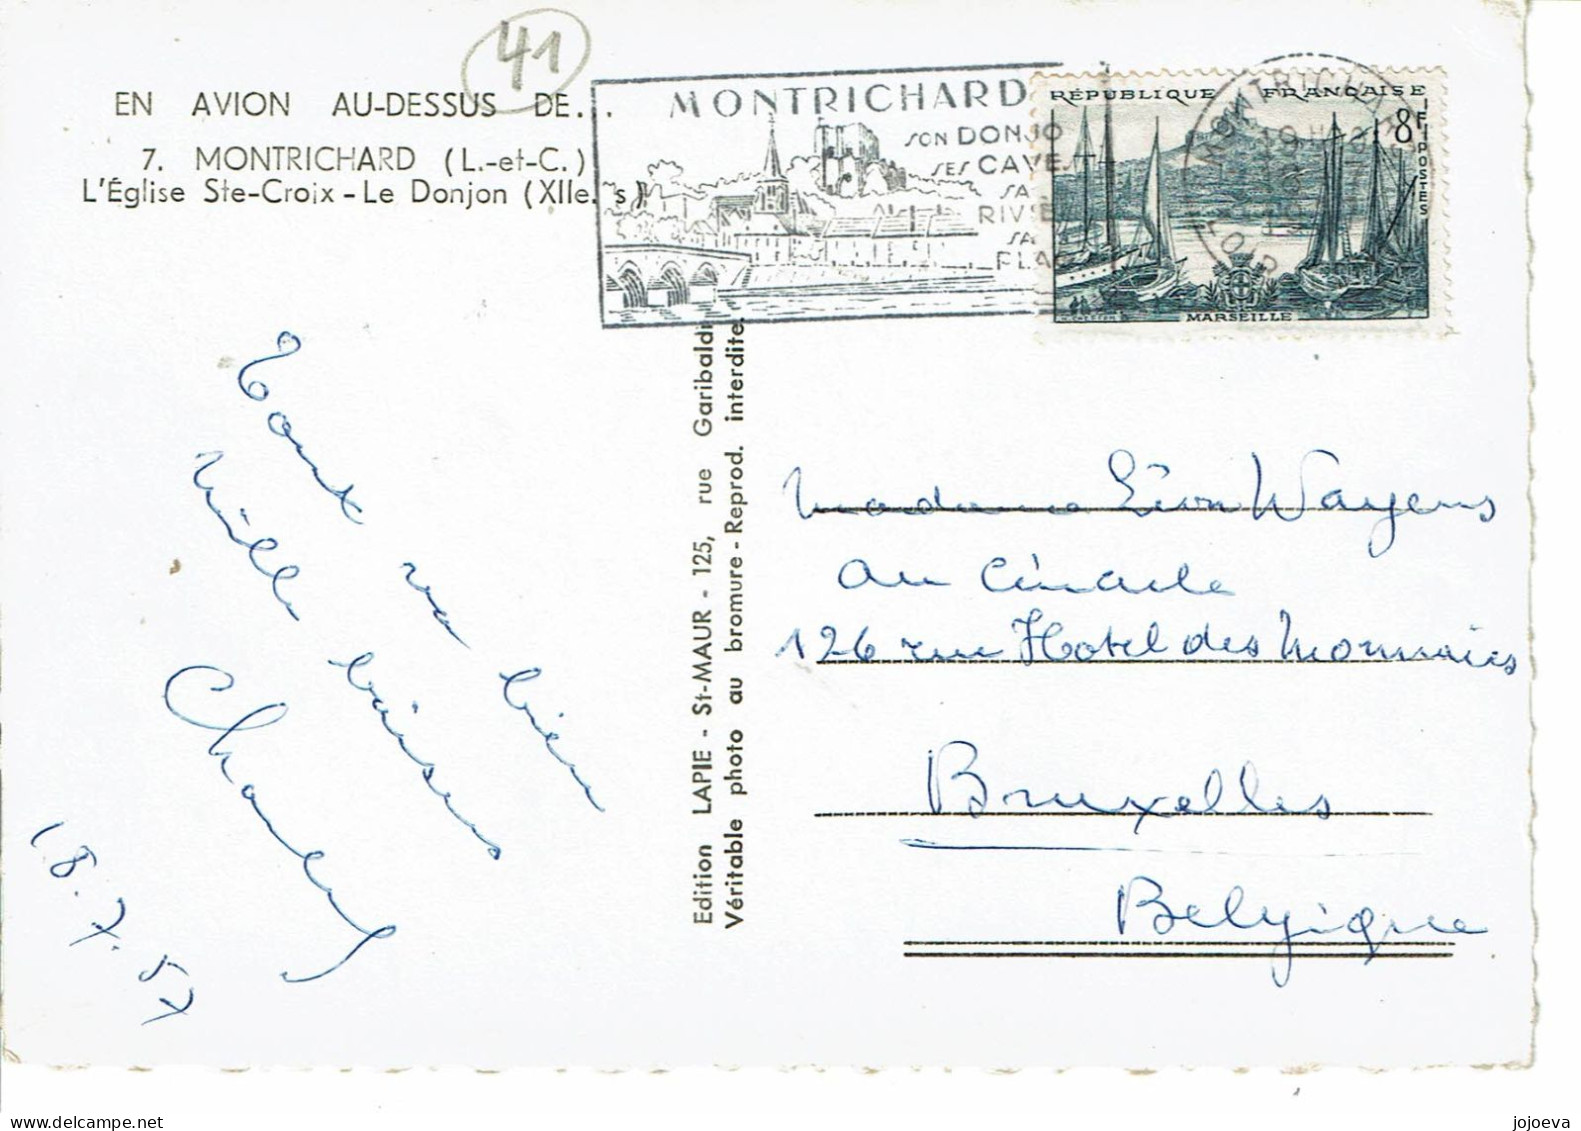 41
EN AVION AU-DESSUS DE...
7. MONTRICHARD (L.-et-C.)
L'Église Ste-Croix - Le Donjon (XIIe. s)
MONTRICHARD
SON DONJO
SES CAVES
SA
RIVIÈ
SA
PLAG
RÉPUBLIQUE FRANÇAISE
8F
POSTES
MARSEILLE
MONTRICHARD
19 H
Tout va bien
mille baisers
18.7.57
Edition LAPIE - St-MAUR - 125, rue Garibaldi
Véritable photo au bromure - Reprod. interdite.
Madame Léon Wauyens
au Cénacle
126 rue Hotel des Monnaies
Bruxelles
Belgique
jojoeva